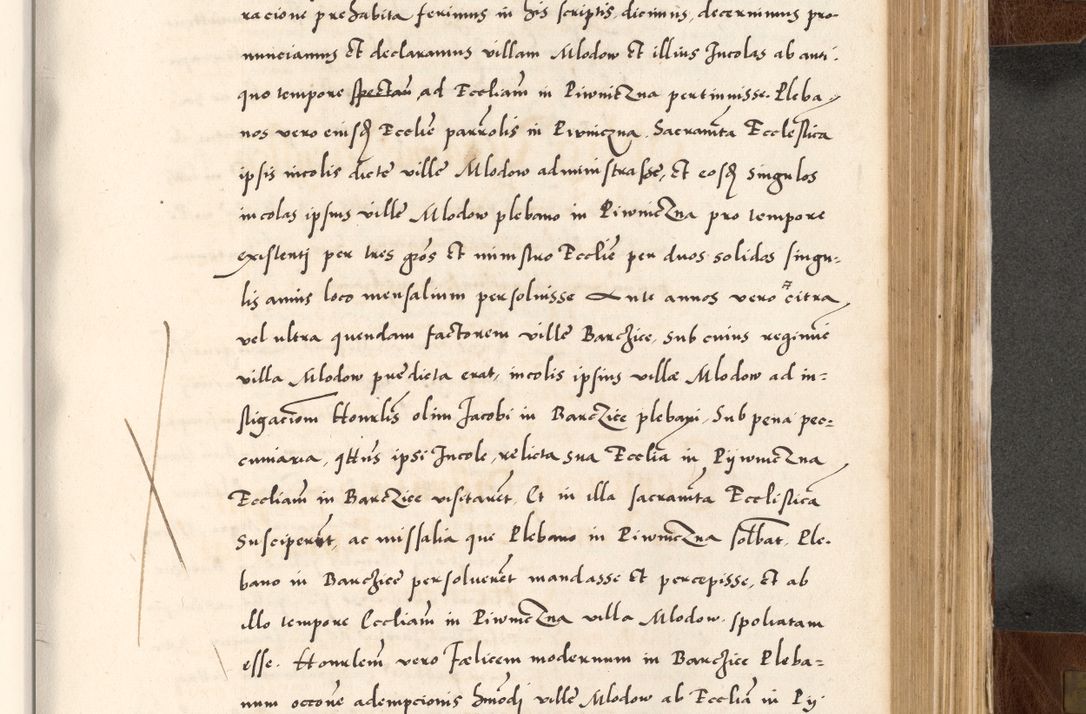 racione prehabita ferimus in his scriptis, dicimus, decernimus pro-
nunciamus et declaramus villam Mlodow et illius Incolas ab anti-
quo tempore spectam ad Eccliam in Piwniczna pertinuisse. Pleba-
nos vero eiusd Ecclie parrolis in Piwniczna, Sacramta Ecclestica
ipsis incolis dicte ville Mlodow administrasse, et eosd singulos
incolas ipsius ville Mlodow plebano in Piwniczna pro tempore
existenti per tres gros et ministro Ecclie per duos solidos singu-
lis annis loco mensalium persoluisse Ante annos vero 7 citra
vel ultra quendam factorem ville Barczice, sub cuius regimie
villa Mlodow predicta erat, incolis ipsius villæ Mlodow ad in=
stigaciom Honrlis olim Jacobi in Barczice plebani, Sub pena pec=
cuniaria, qtens ipsi Incole, relicta sua Ecclia in Pijwniczna
Eccliam in Barczice visitarent, Et in illa sacramta Ecclistica
Susciperent, ac missalia que Plebano in Piwniczna solbat, Ple-
bano in Barczice persoluerent mandasse et percepisse, et ab
illo tempore Eccliam in Piwniczna villa Mlodow spoliatam
esse. Honrlem vero Fælicem modernum in Barczice Pleba=
num occone adempcionis hmodi ville Mlodow ab Ecclia in Pij-